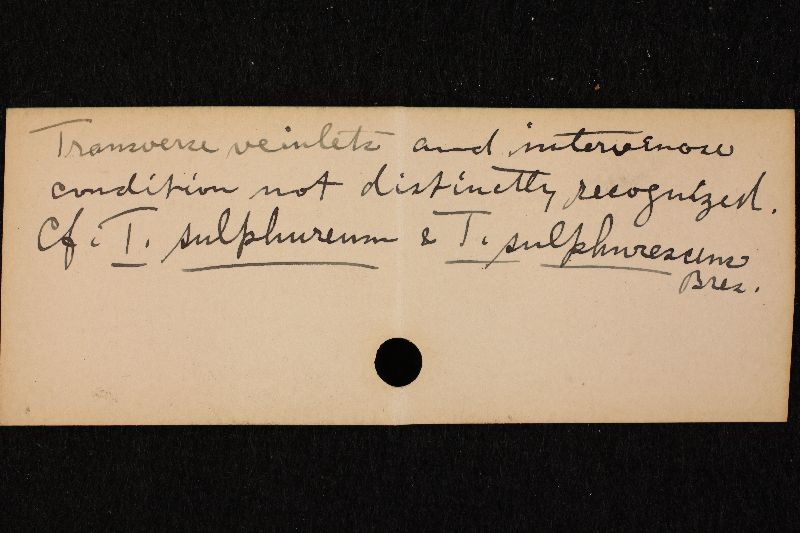 Transverse veinlets and intervenose
condition not distinctly recognized.
Cf. T. sulphureum & T. sulphurescens
Bres.